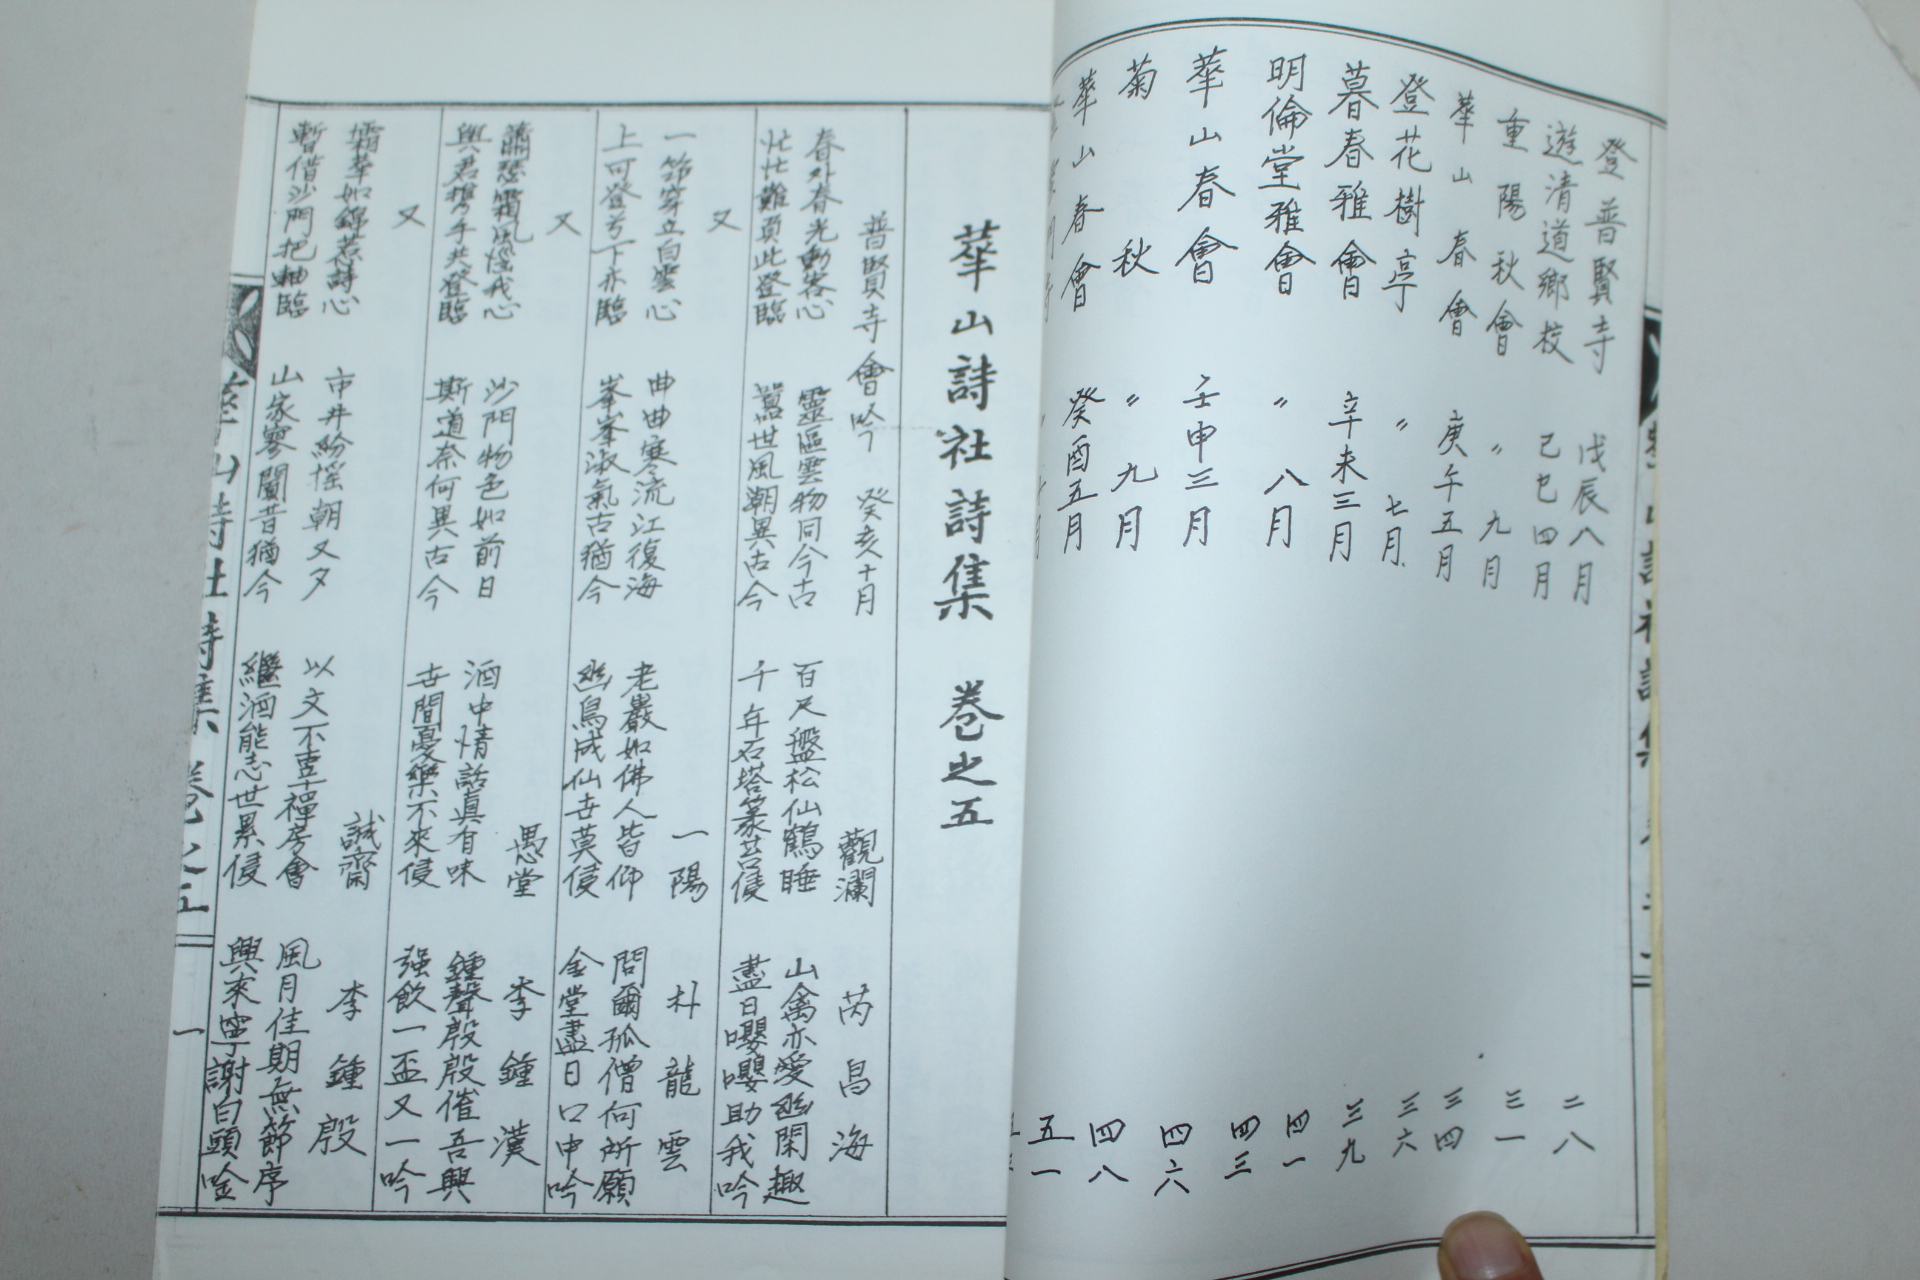 登普賢寺 戊辰八月 二八
遊清道鄉校 己巳四月
重陽秋會 〃九月 三一
華山春會 庚午五月 三四
登花樹亭 〃七月 三六
暮春雅會 辛未三月 三九
明倫堂雅會 〃八月 四一
華山春會 壬申三月 四三
菊秋 〃九月 四六
華山春會 癸酉五月 四八
五一
華山詩社詩集 卷之五
普賢寺會吟 癸亥十月 觀瀾 芮昌海
春外春光動客心 靈區雲物同今古 百尺盤松仙鶴睡 山禽亦愛幽閑趣
忙忙難負此登臨 囂世風潮異古今 千年石塔篆苔侵 盡日嚶嚶助我吟
又 一陽 朴龍雲
一笻穿立白雲心 曲曲寒流江復海 老巖如佛人皆仰 問爾孤僧何所願
上可登兮下亦臨 峯峯淑氣古猶今 幽鳥成仙世莫侵 金堂盡日口申吟
又 愚堂 李鍾漢
蕭瑟霜風惱我心 沙門物色如前日 酒中情話眞有味 鍾聲殷殷催吾興
與君携手共登臨 斯道奈何異古今 世間憂樂不來侵 强飮一盃又一吟
又 誠齋 李鍾殷
霜華如錦惹詩心 市井紛搖朝又夕 以文不害禪房會 風月佳期無節序
暫借沙門把軸臨 山家寥闃昔猶今 繼酒能忘世累侵 興來寧謝白頭唫
華山詩社詩集 卷之五 一